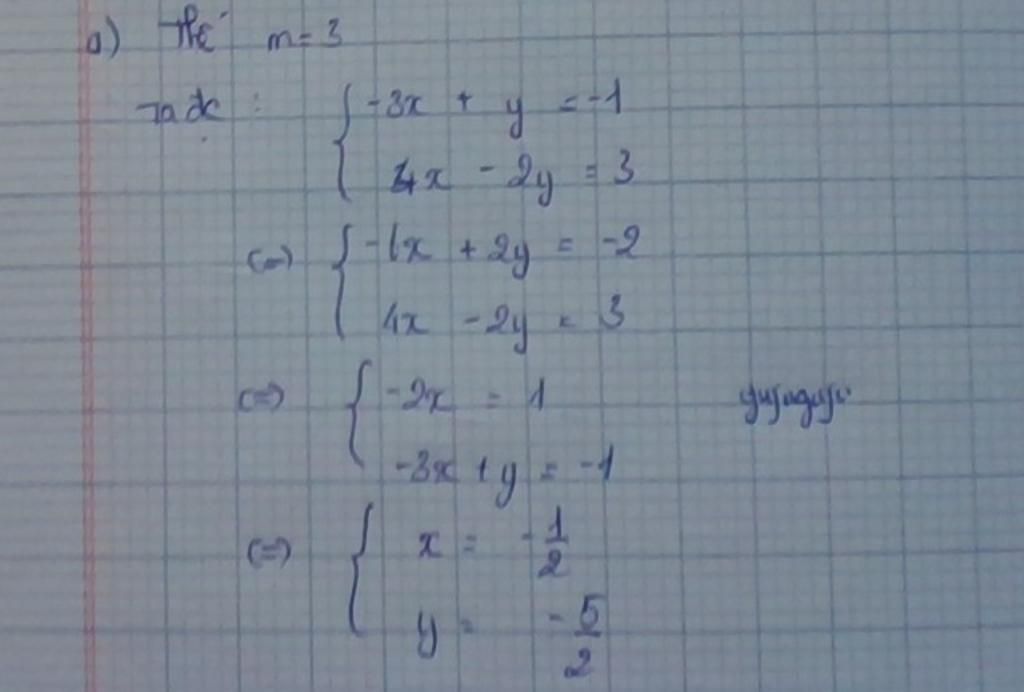 a) Thế m = 3
Ta đc : { -3x + y = -1
4x - 2y = 3
(=) { -6x + 2y = -2
4x - 2y = 3
(=) { -2x = 1
-3x + y = -1
(=) { x = -1/2
y = -5/2